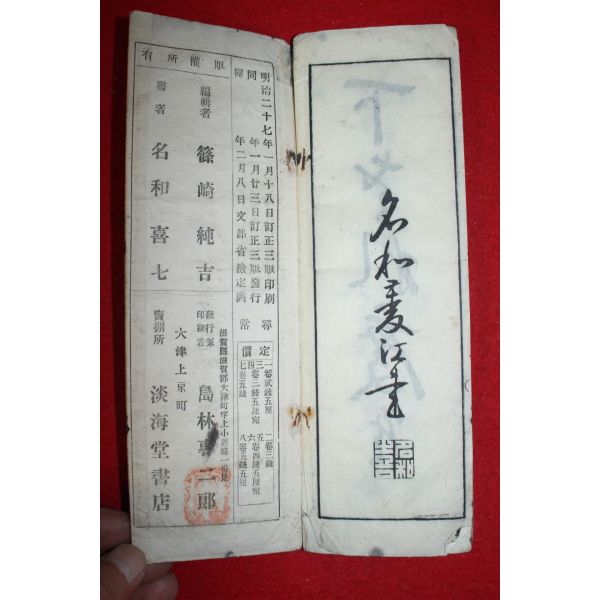 名和
江書
明治二十七年一月十八日訂正三版印刷
同年一月廿三日訂正三版發行
同年二月八日文部省檢定濟
尋常
定價
一卷貳錢五厘
二卷三錢
三卷三錢五厘宛
五卷四錢五厘宛
七卷五錢
八卷五錢五厘
版權所有
編輯者 篠崎純吉
書者 名和喜七
滋賀縣滋賀郡大津町字上小唐崎一番地
發行兼印刷者 島林專二郎
大津上京町
賣捌所 淡海堂書店